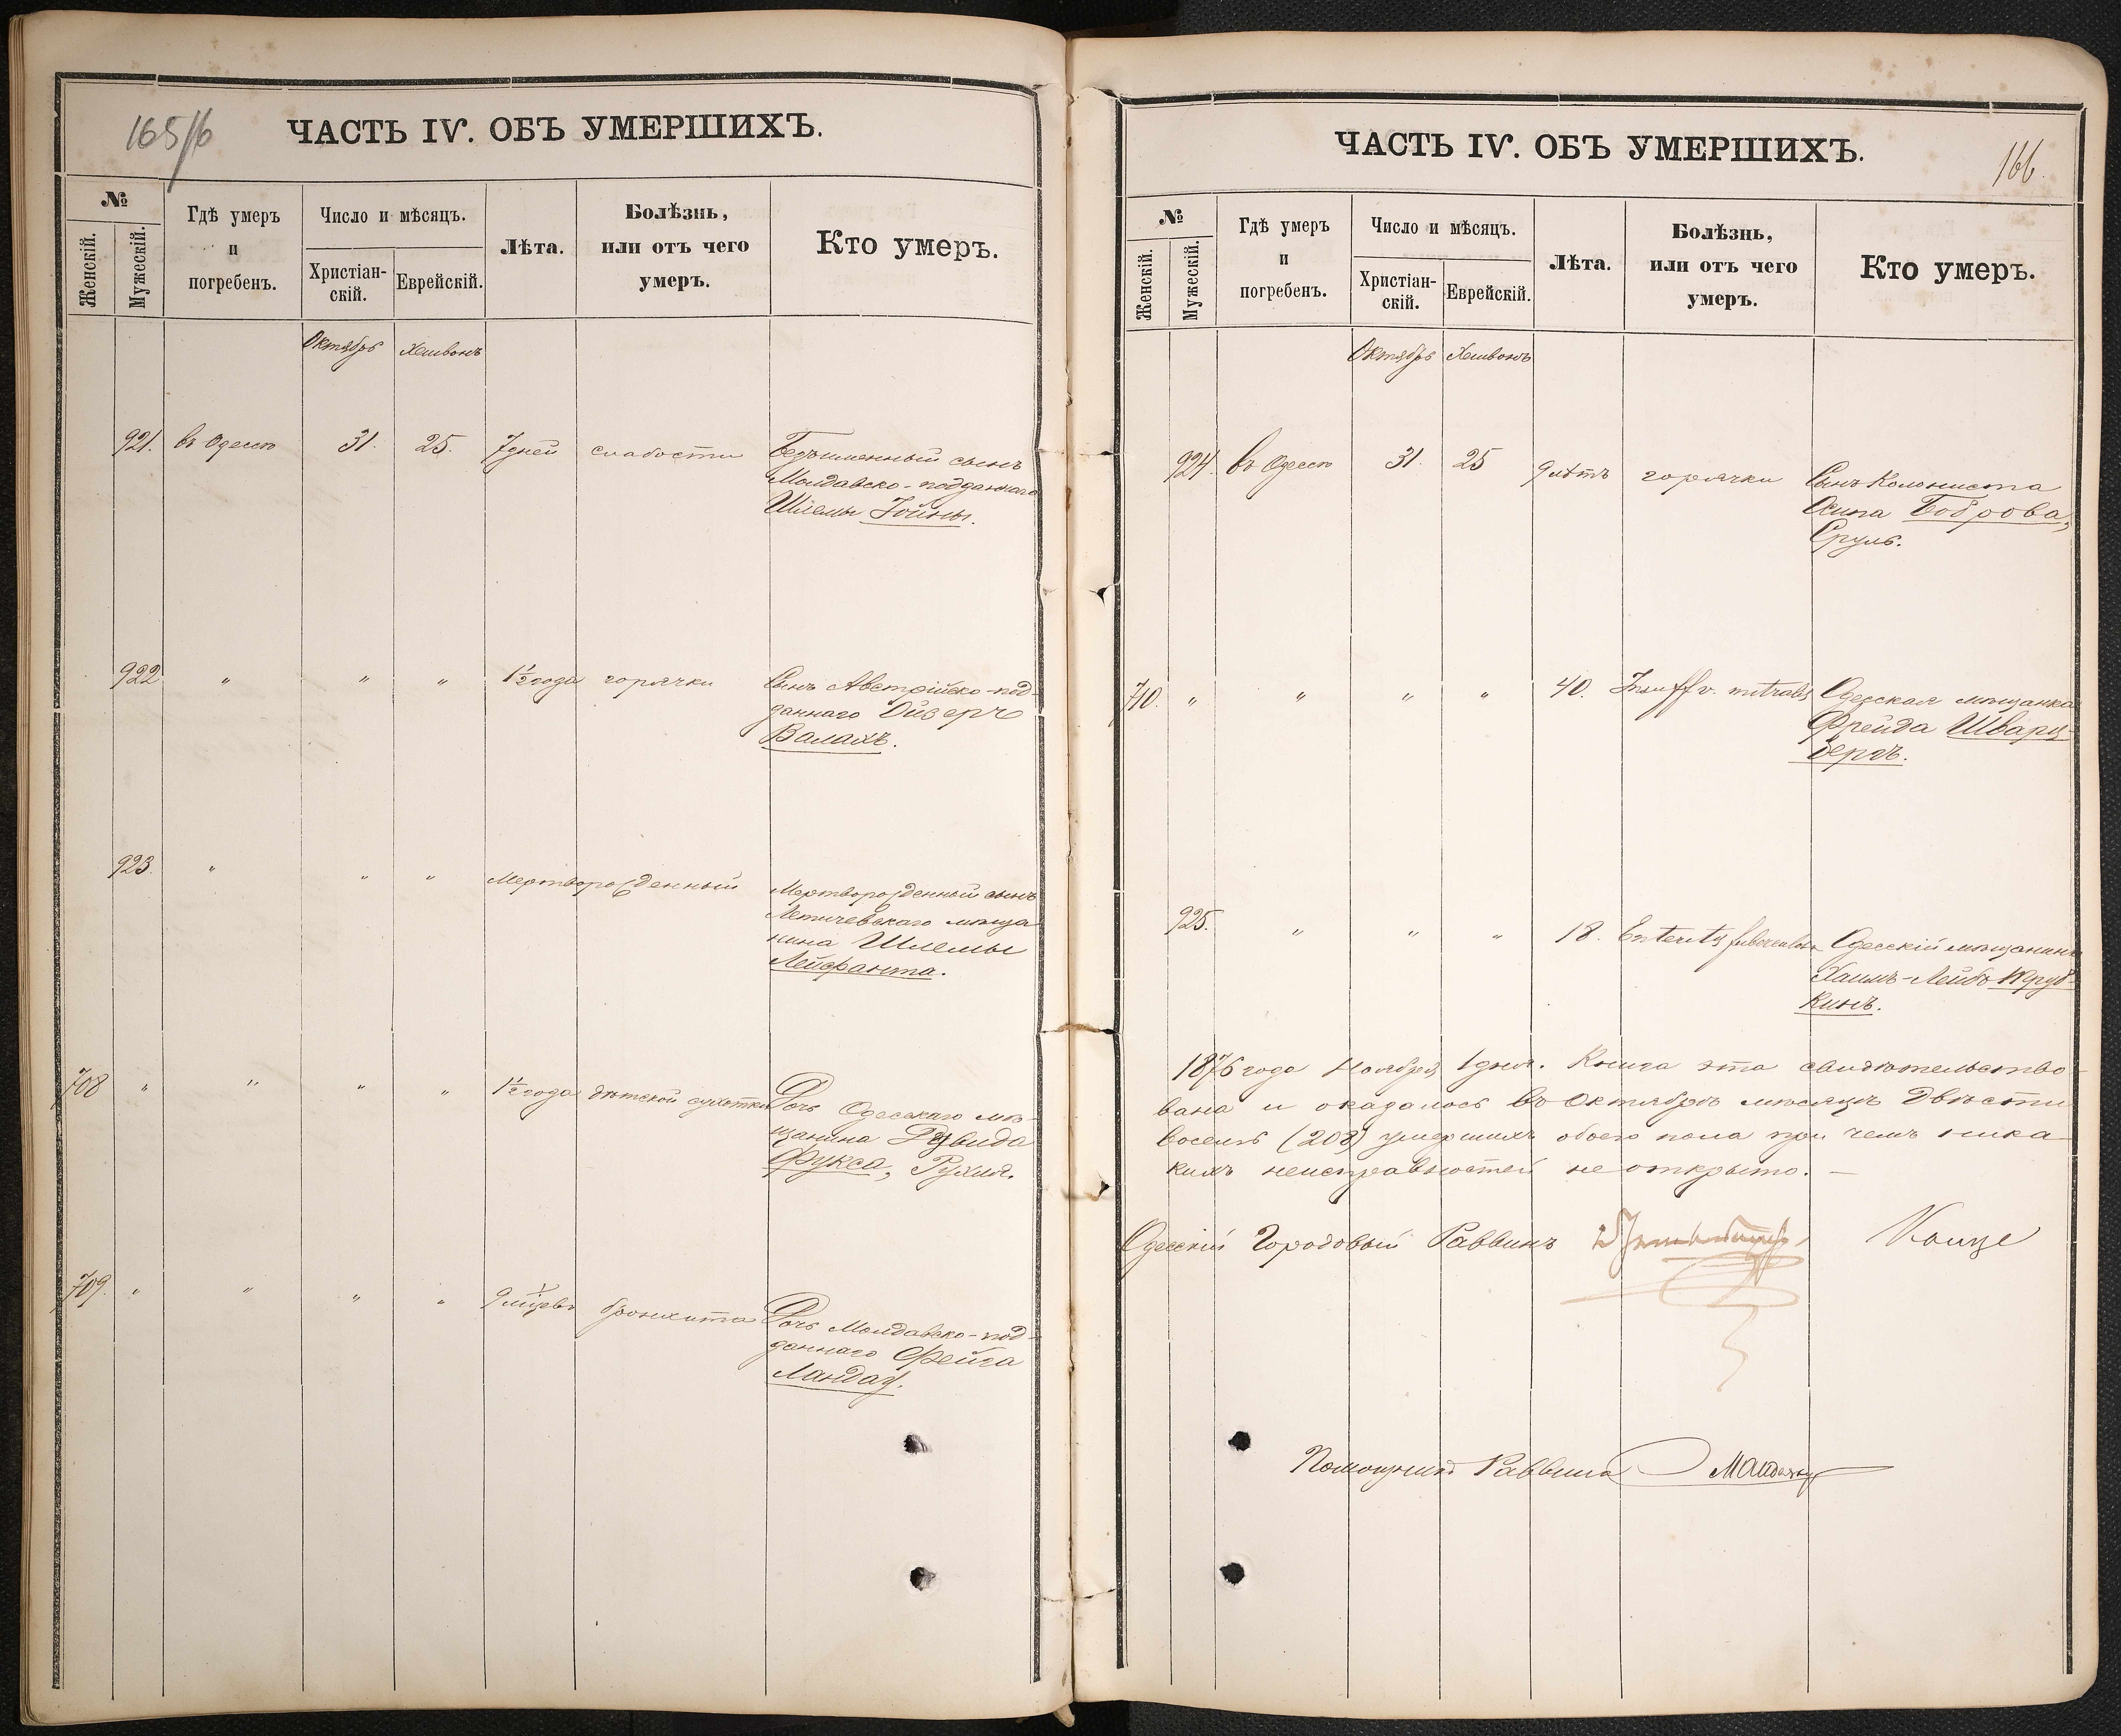 165/16
ЧАСТЬ IV. ОБЪ УМЕРШИХЪ.
№
Женскій.
Мужескій.
Гдѣ умеръ
и
погребенъ.
Число и мѣсяцъ.
Христіан-
скій.
Еврейскій.
Лѣта.
Болѣзнь,
или отъ чего
умеръ.
Кто умеръ.
Октябрь Хешвонъ
921. въ Одессѣ 31. 25. 7 дней слабости Безъименный сынъ
Молдавско-подданаго
Шлемы Іойны.
922 " " " 1½ года горячки Сынъ Австрійско-под-
даннаго Ойзеръ
Валахъ.
923. " " " Мертворожденный Мертворожденный сынъ
Летичевскаго мѣща
нина Шлемы
Лейфанта.
708 " " " " 1½ года дѣтской сухотки Дочь Одесскаго мѣ-
щанина Дувида
Фукса, Рухля.
709. " " " " 9 мѣсцевъ бронхита Дочь Молдавско-под-
даннаго Фейга
Ландау.
ЧАСТЬ IV. ОБЪ УМЕРШИХЪ.
166.
№
Женскій.
Мужескій.
Гдѣ умеръ
и
погребенъ.
Число и мѣсяцъ.
Христіан-
скій.
Еврейскій.
Лѣта.
Болѣзнь,
или отъ чего
умеръ.
Кто умеръ.
Октябрь Хешвонъ
924. въ Одессѣ 31. 25 9 лѣтъ горячки Сынъ Колониста
Осипа Боброва,
Сруль.
710. " " " " 40. Insuff v. mitralis Одесская мѣщанка
Фрейда Шварц-
бергъ.
925. " " " 18. Enteritis tuberculosa Одесскій мѣщанинъ
Хаимъ-Лейбъ
кинъ.
1876 года Ноября 1 дня. Книга эта свидѣтельство-
вана и оказалось въ Октябрѣ мѣсяцѣ двѣсти
восемь (208) умершихъ обоего пола при чемъ ника
кихъ неисправностей не открыто. —
Одесскій Городовый Раввинъ
Помощникъ Раввина